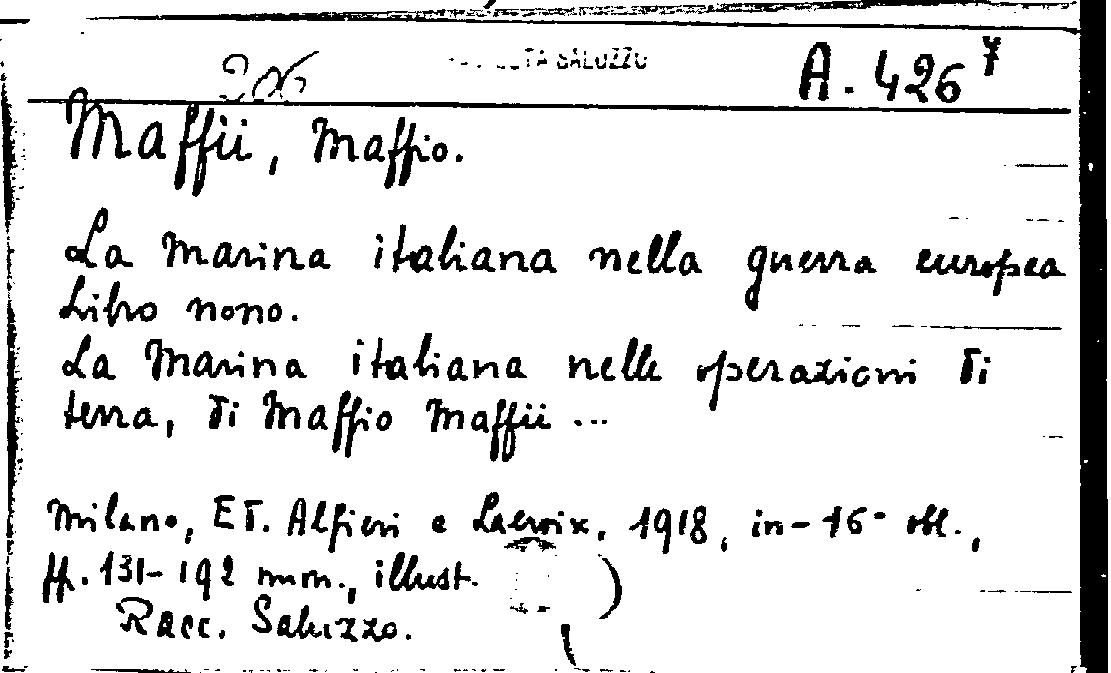 206 SALUZZO A. 426⁷
Maffii, Maffio.
La Marina italiana nella guerra europea
Libro nono.
La Marina italiana nelle operazioni di
terra, di Maffio Maffii ...
Milano, Ed. Alfieri e Lacroix, 1918, in-16° obl.,
ff. 131-192 num., illust.
Racc. Saluzzo.